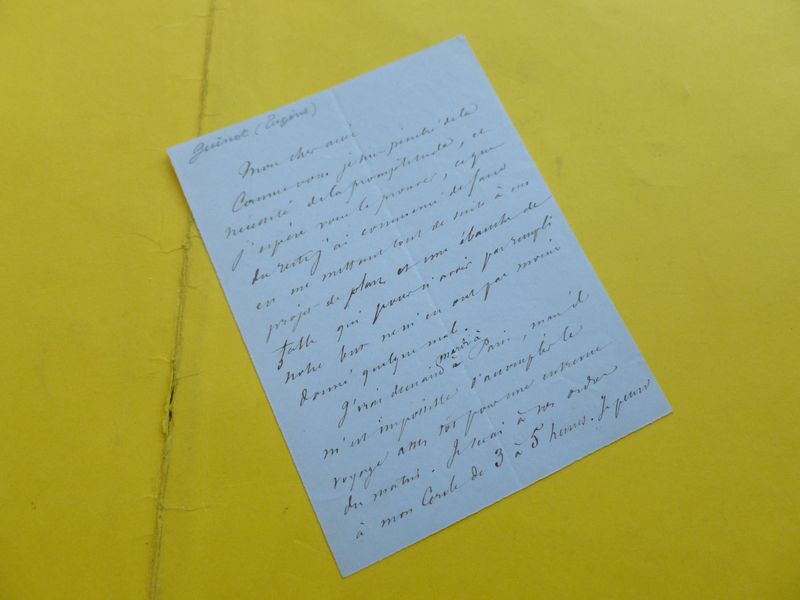 Guinot (Eugène)
Mon cher ami
Comme vous je suis pénétré de la
nécessité de la promptitude, et
j'espère vous le prouver, ce que
du reste j'ai commencé de faire
en me mettant tout de suite à un
projet de plan et une ébauche de
table qui pour n'avoir pas rempli
notre but ne m'en ont pas moins
donné quelque mal.
J'irai demain mardi à Paris, mais il
m'est impossible d'accomplir le
voyage assez tôt pour une entrevue
du matin. Je serai à vos ordres
à mon Cercle de 3 à 5 heures. Je pourrai